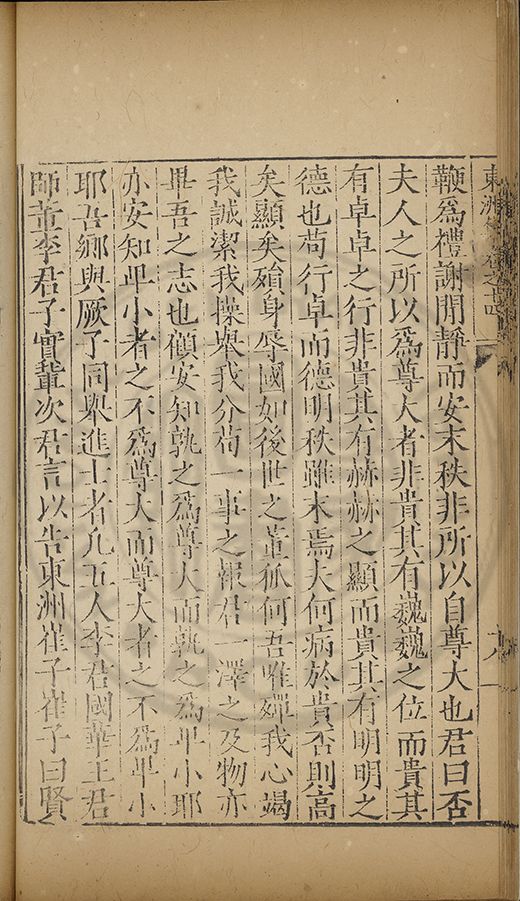 鞭爲禮謝閒靜而安末秩非所以自尊大也君曰否
夫人之所以爲尊大者非貴其有巍巍之位而貴其
有卓卓之行非貴其有赫赫之顯而貴其有明明之
德也苟行卓而德明秩雖末焉夫何病於貴否則高
矣顯矣殞身辱國如後世之董狐何吾唯殫我心竭
我誠潔我操舉我分苟一事之報君一澤之及物亦
畢吾之志也顧安知孰之爲尊大而孰之爲卑小耶
亦安知卑小者之不爲尊大而尊大者之不爲卑小
耶吾鄉與厥子同舉進士者凡五人李君國華王君
師董李君子實輩次君言以告東洲崔子崔子曰賢